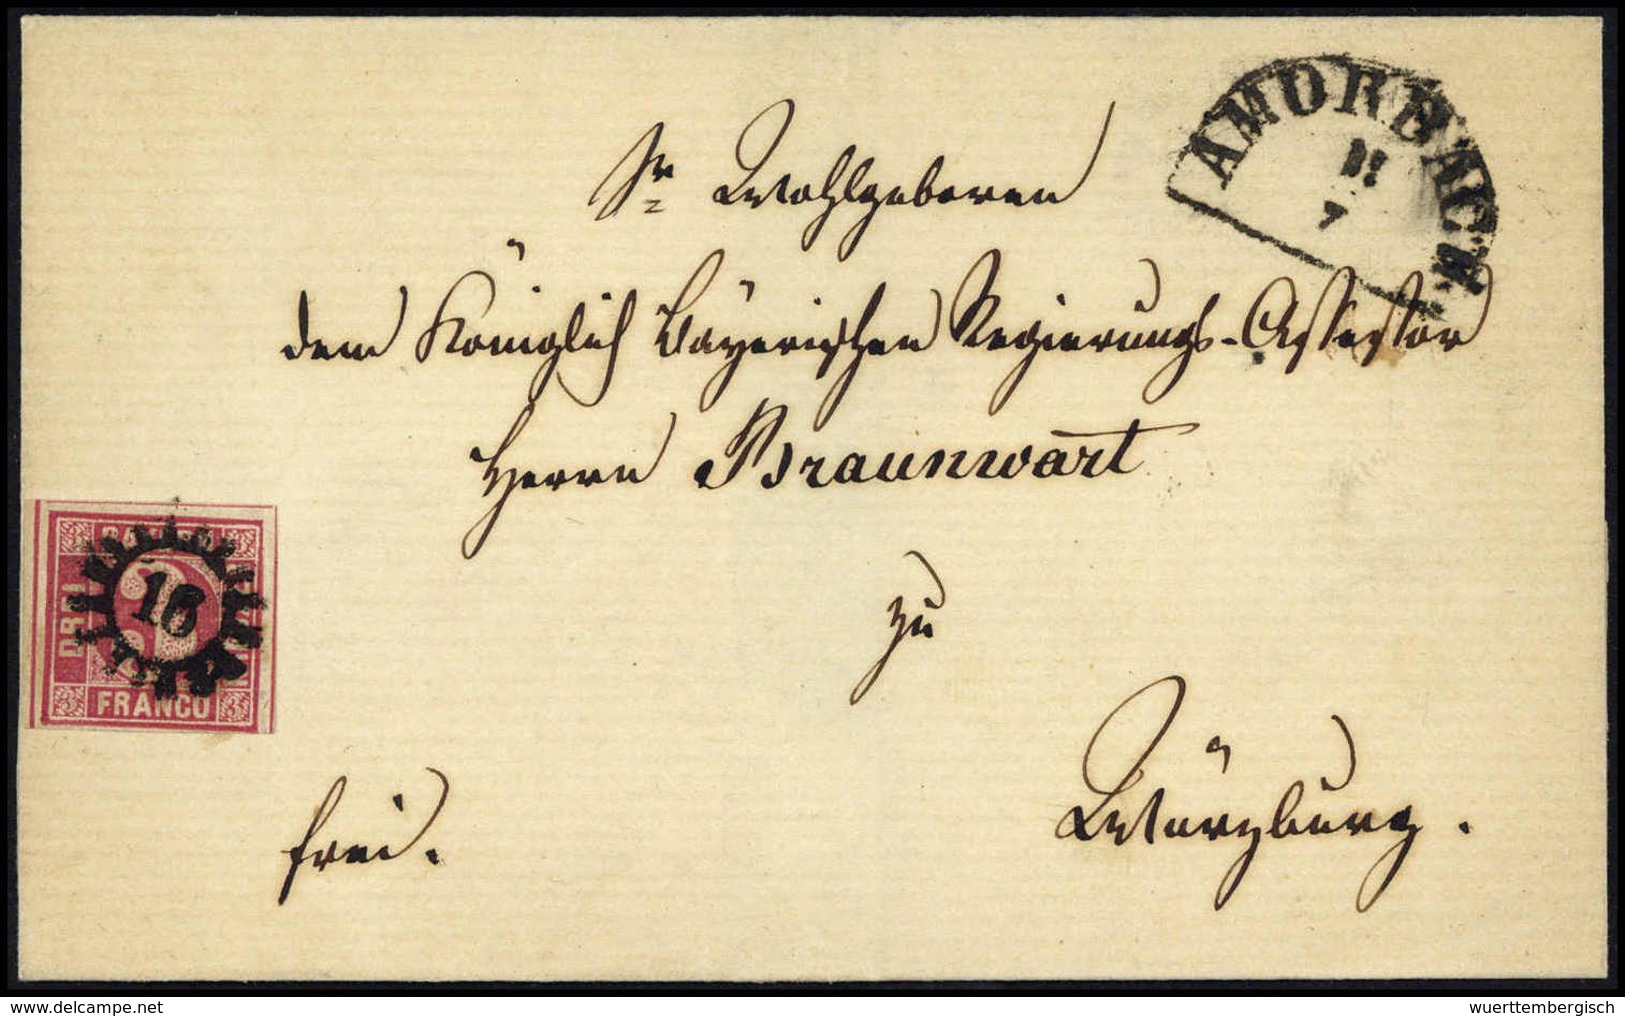 AMORBACH
7
Sr Wohlgeboren
dem Königlich Bayerischen Regierungs-Assessor
Herrn Braunwart
zu
Würzburg.
frei.
DREI
16
FRANCO
© www.delcampe.net
wuerttembergisch